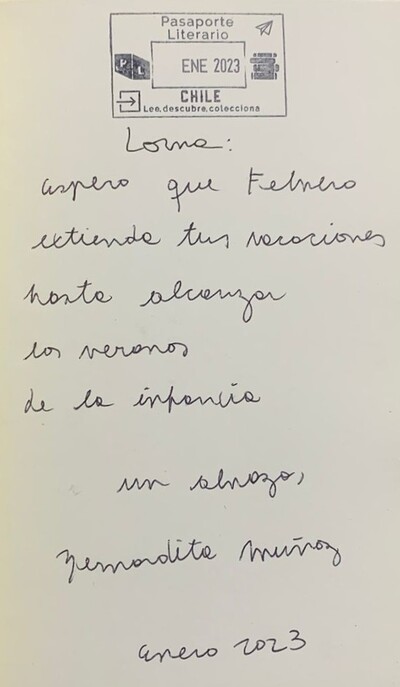 Pasaporte
Literario
ENE 2023
CHILE
Lee, descubre, colecciona
Lorna:
espero que Febrero
extienda tus vacaciones
hasta alcanzar
los veranos
de la infancia
un abrazo,
Bernardita Muñoz
enero 2023